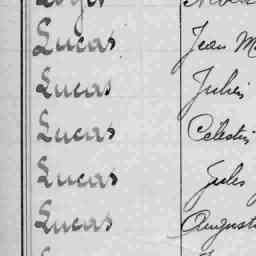 Lucas Jean M
Lucas Julien
Lucas Celestin
Lucas Jules
Lucas Auguste